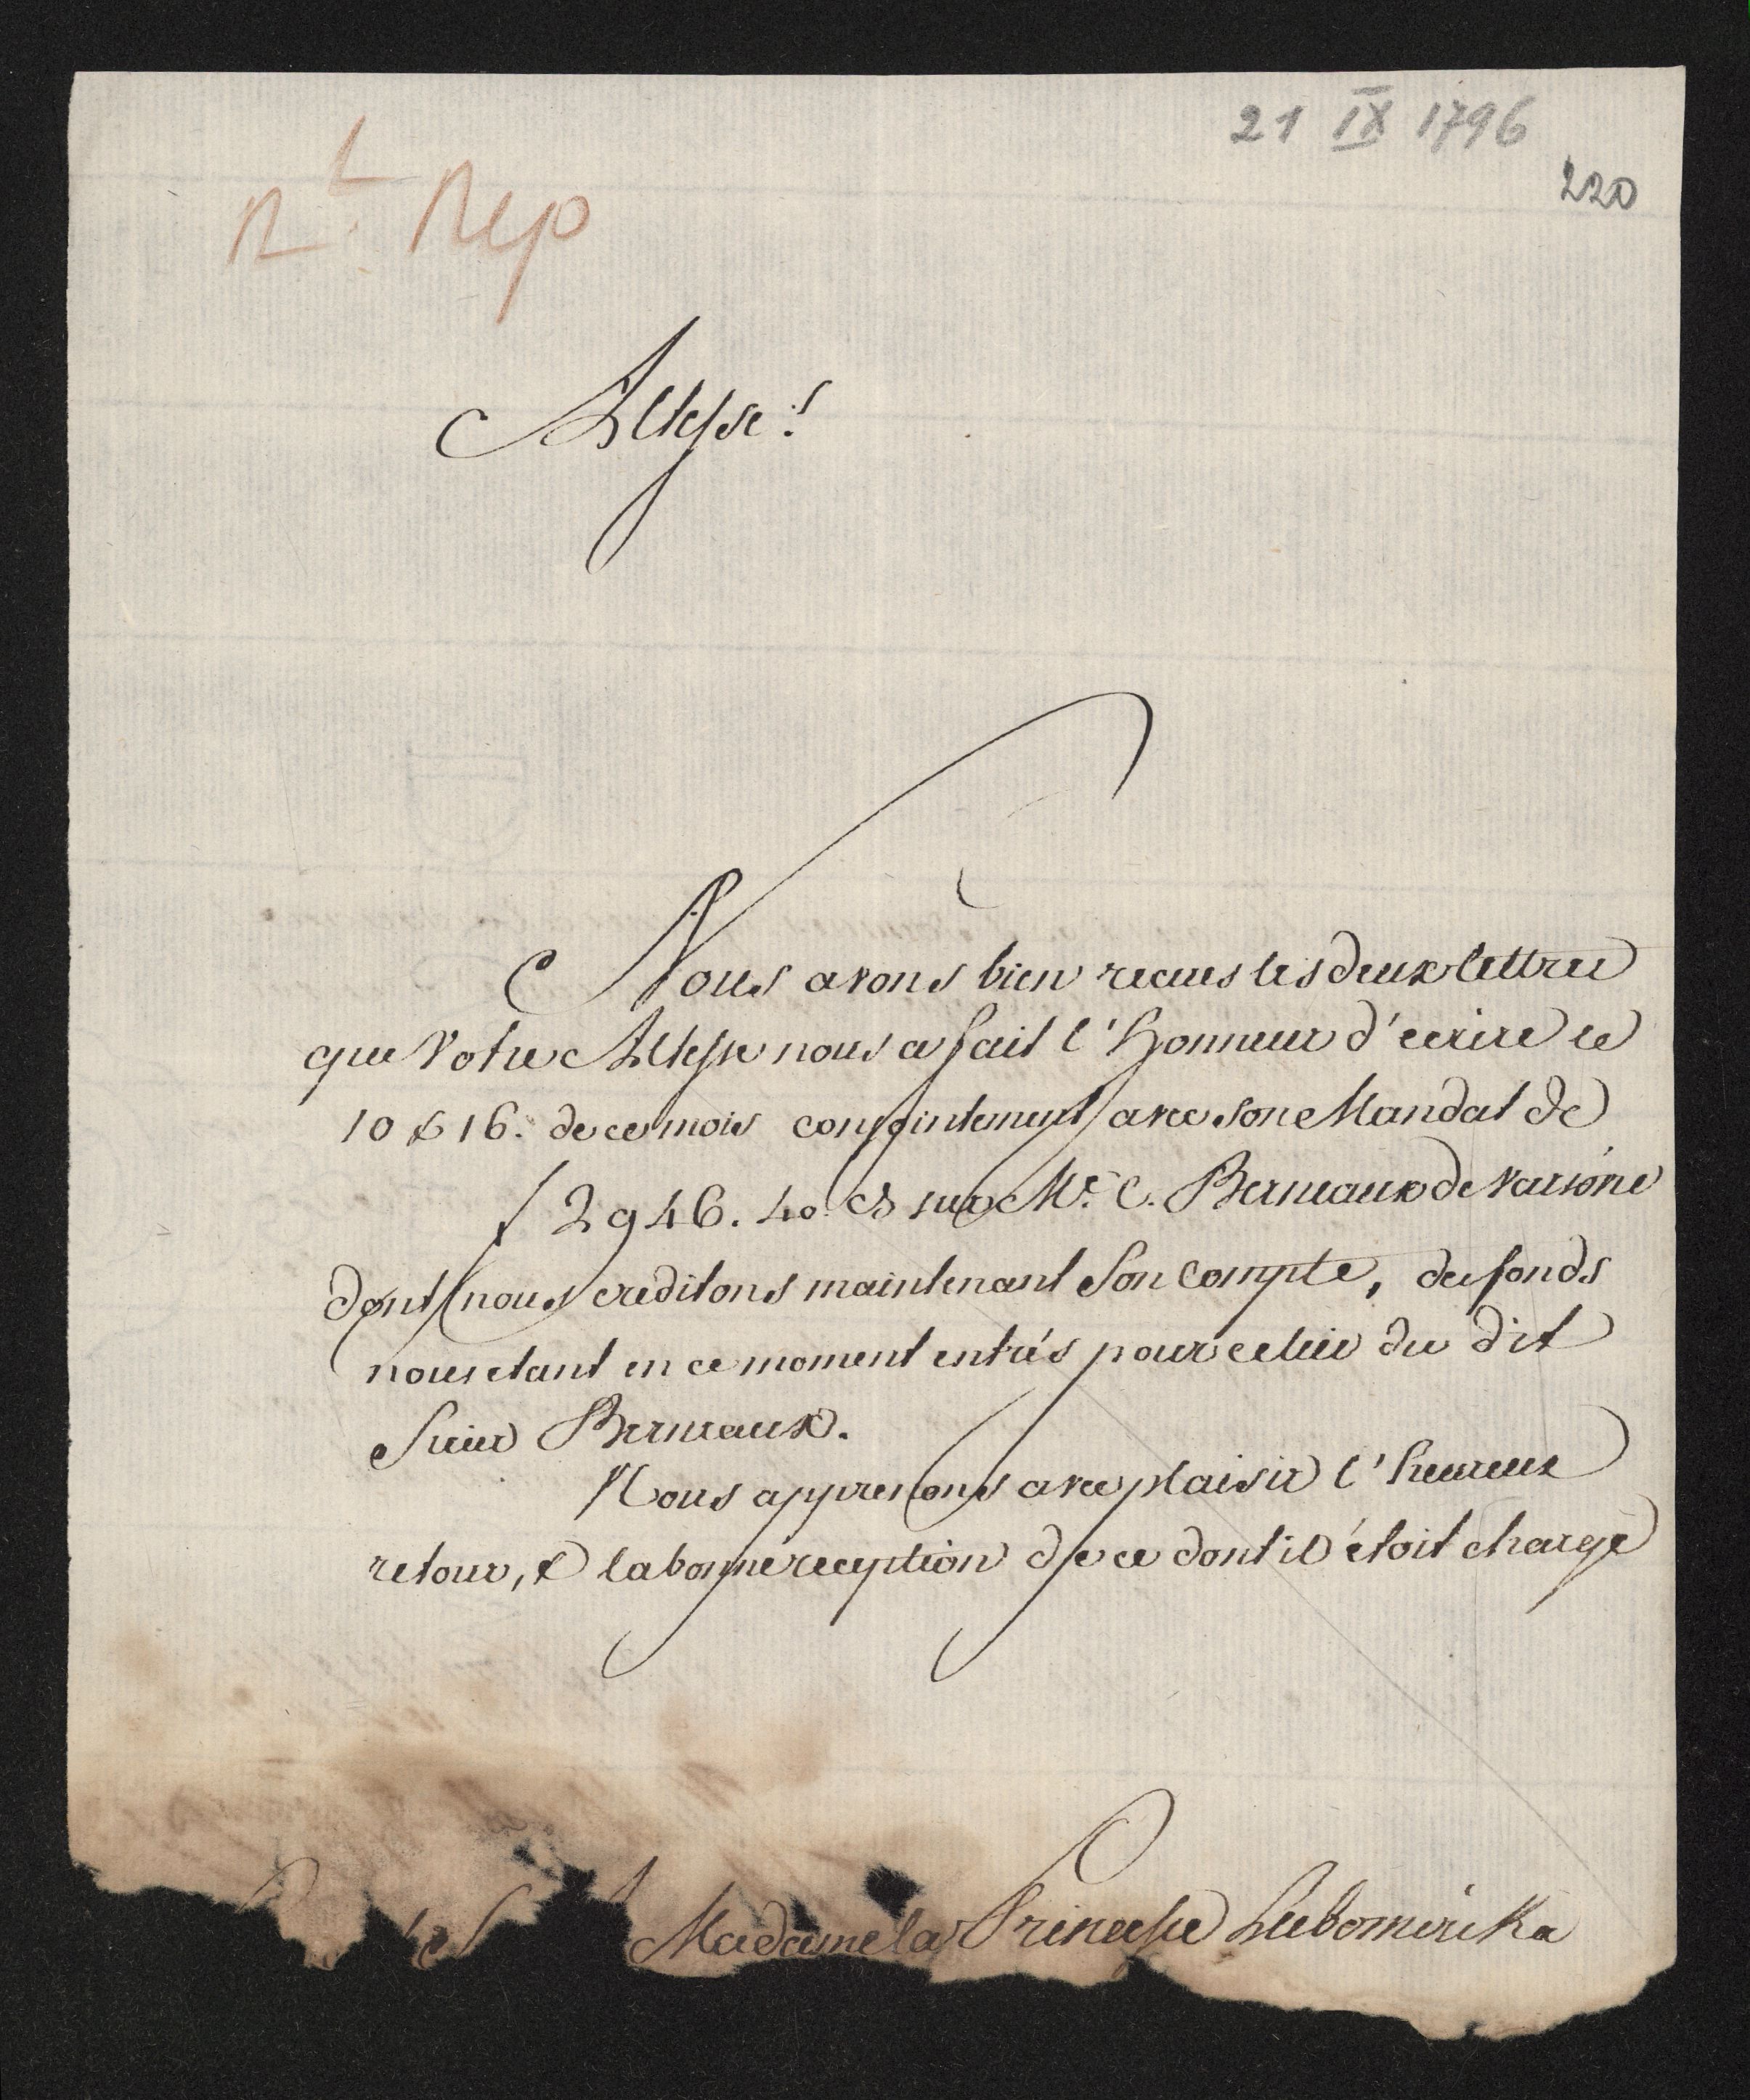 21 IX 1796
220
Altesse!
Nous avons bien recues les deux lettres
que Votre Altesse nous a fait l'Honneur d'ecrire le
10 & 16. de ce mois conjointement avec son Mandat de
f 2946. 40. sur Mr. C. Berneaux de Varsovie
dont nous creditons maintenant Son Compte, des fonds
nous etant en ce moment entrés pour celui du dit
Sieur Berneaux.
Nous apprenons avec plaisir l'heureux
retour, & la bonne reception de ce dont il étoit chargé
Madame la Princesse Lubomirska